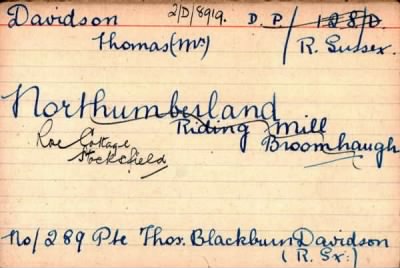 Davidson 2/D/8919. D. P. / 128/D.
Thomas (Mr) / R. Sussex.
Northumberland
Riding Mill
Roe Cottage Broomhaugh
Stocksfield
No/289 Pte Thos. Blackburn Davidson
(R. Sx:)